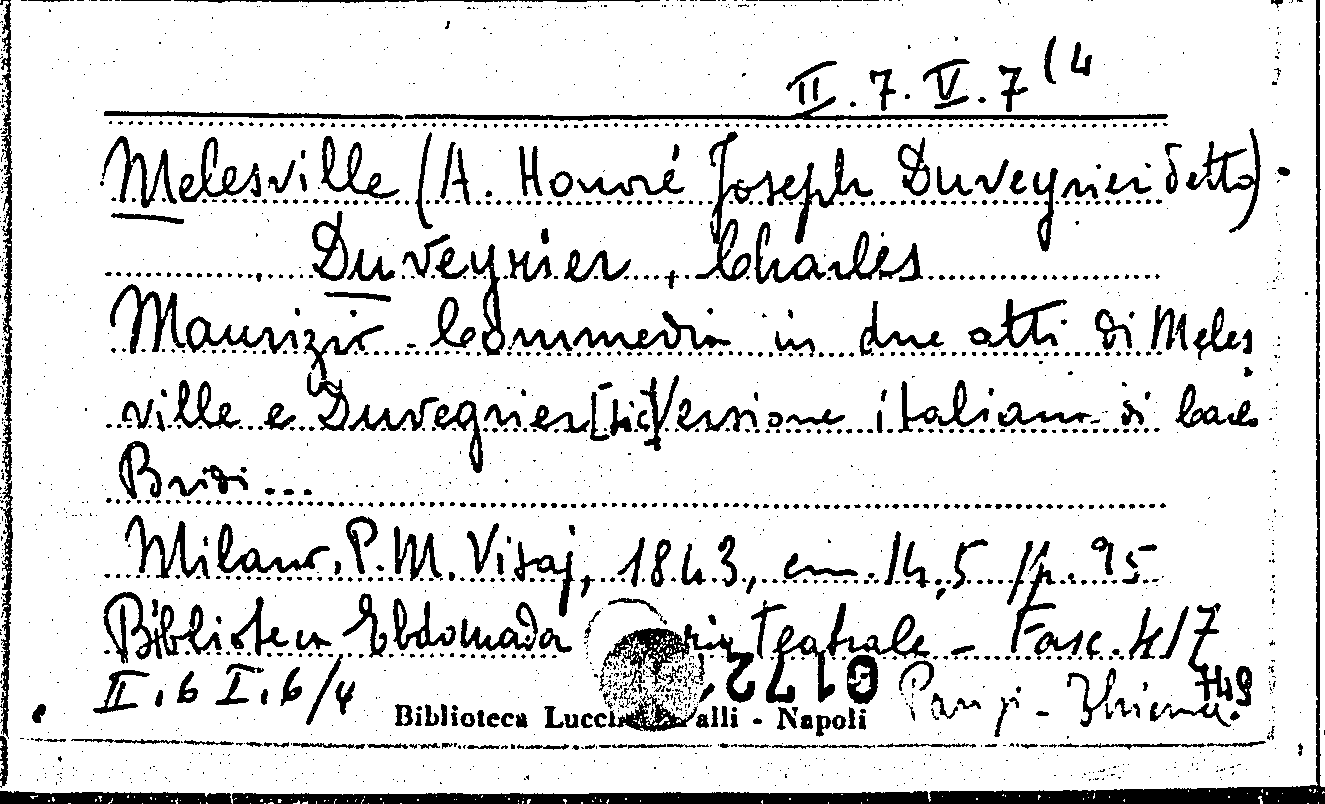 II.7.V.7(4
Melesville (A. Honoré Joseph Duveyrier detto).
Duveyrier, Charles
Maurizio. Commedia in due atti di Meles
ville e Duvegrier [sic] Versione italiana di Carlo
Bridi...
Milano, P. M. Visaj, 1843, cm. 14,5 pp. 95
Biblioteca Ebdomada ria Teatrale - Fasc. 417
II.6 I.6/4
0172
749
Biblioteca Lucchesi Palli - Napoli